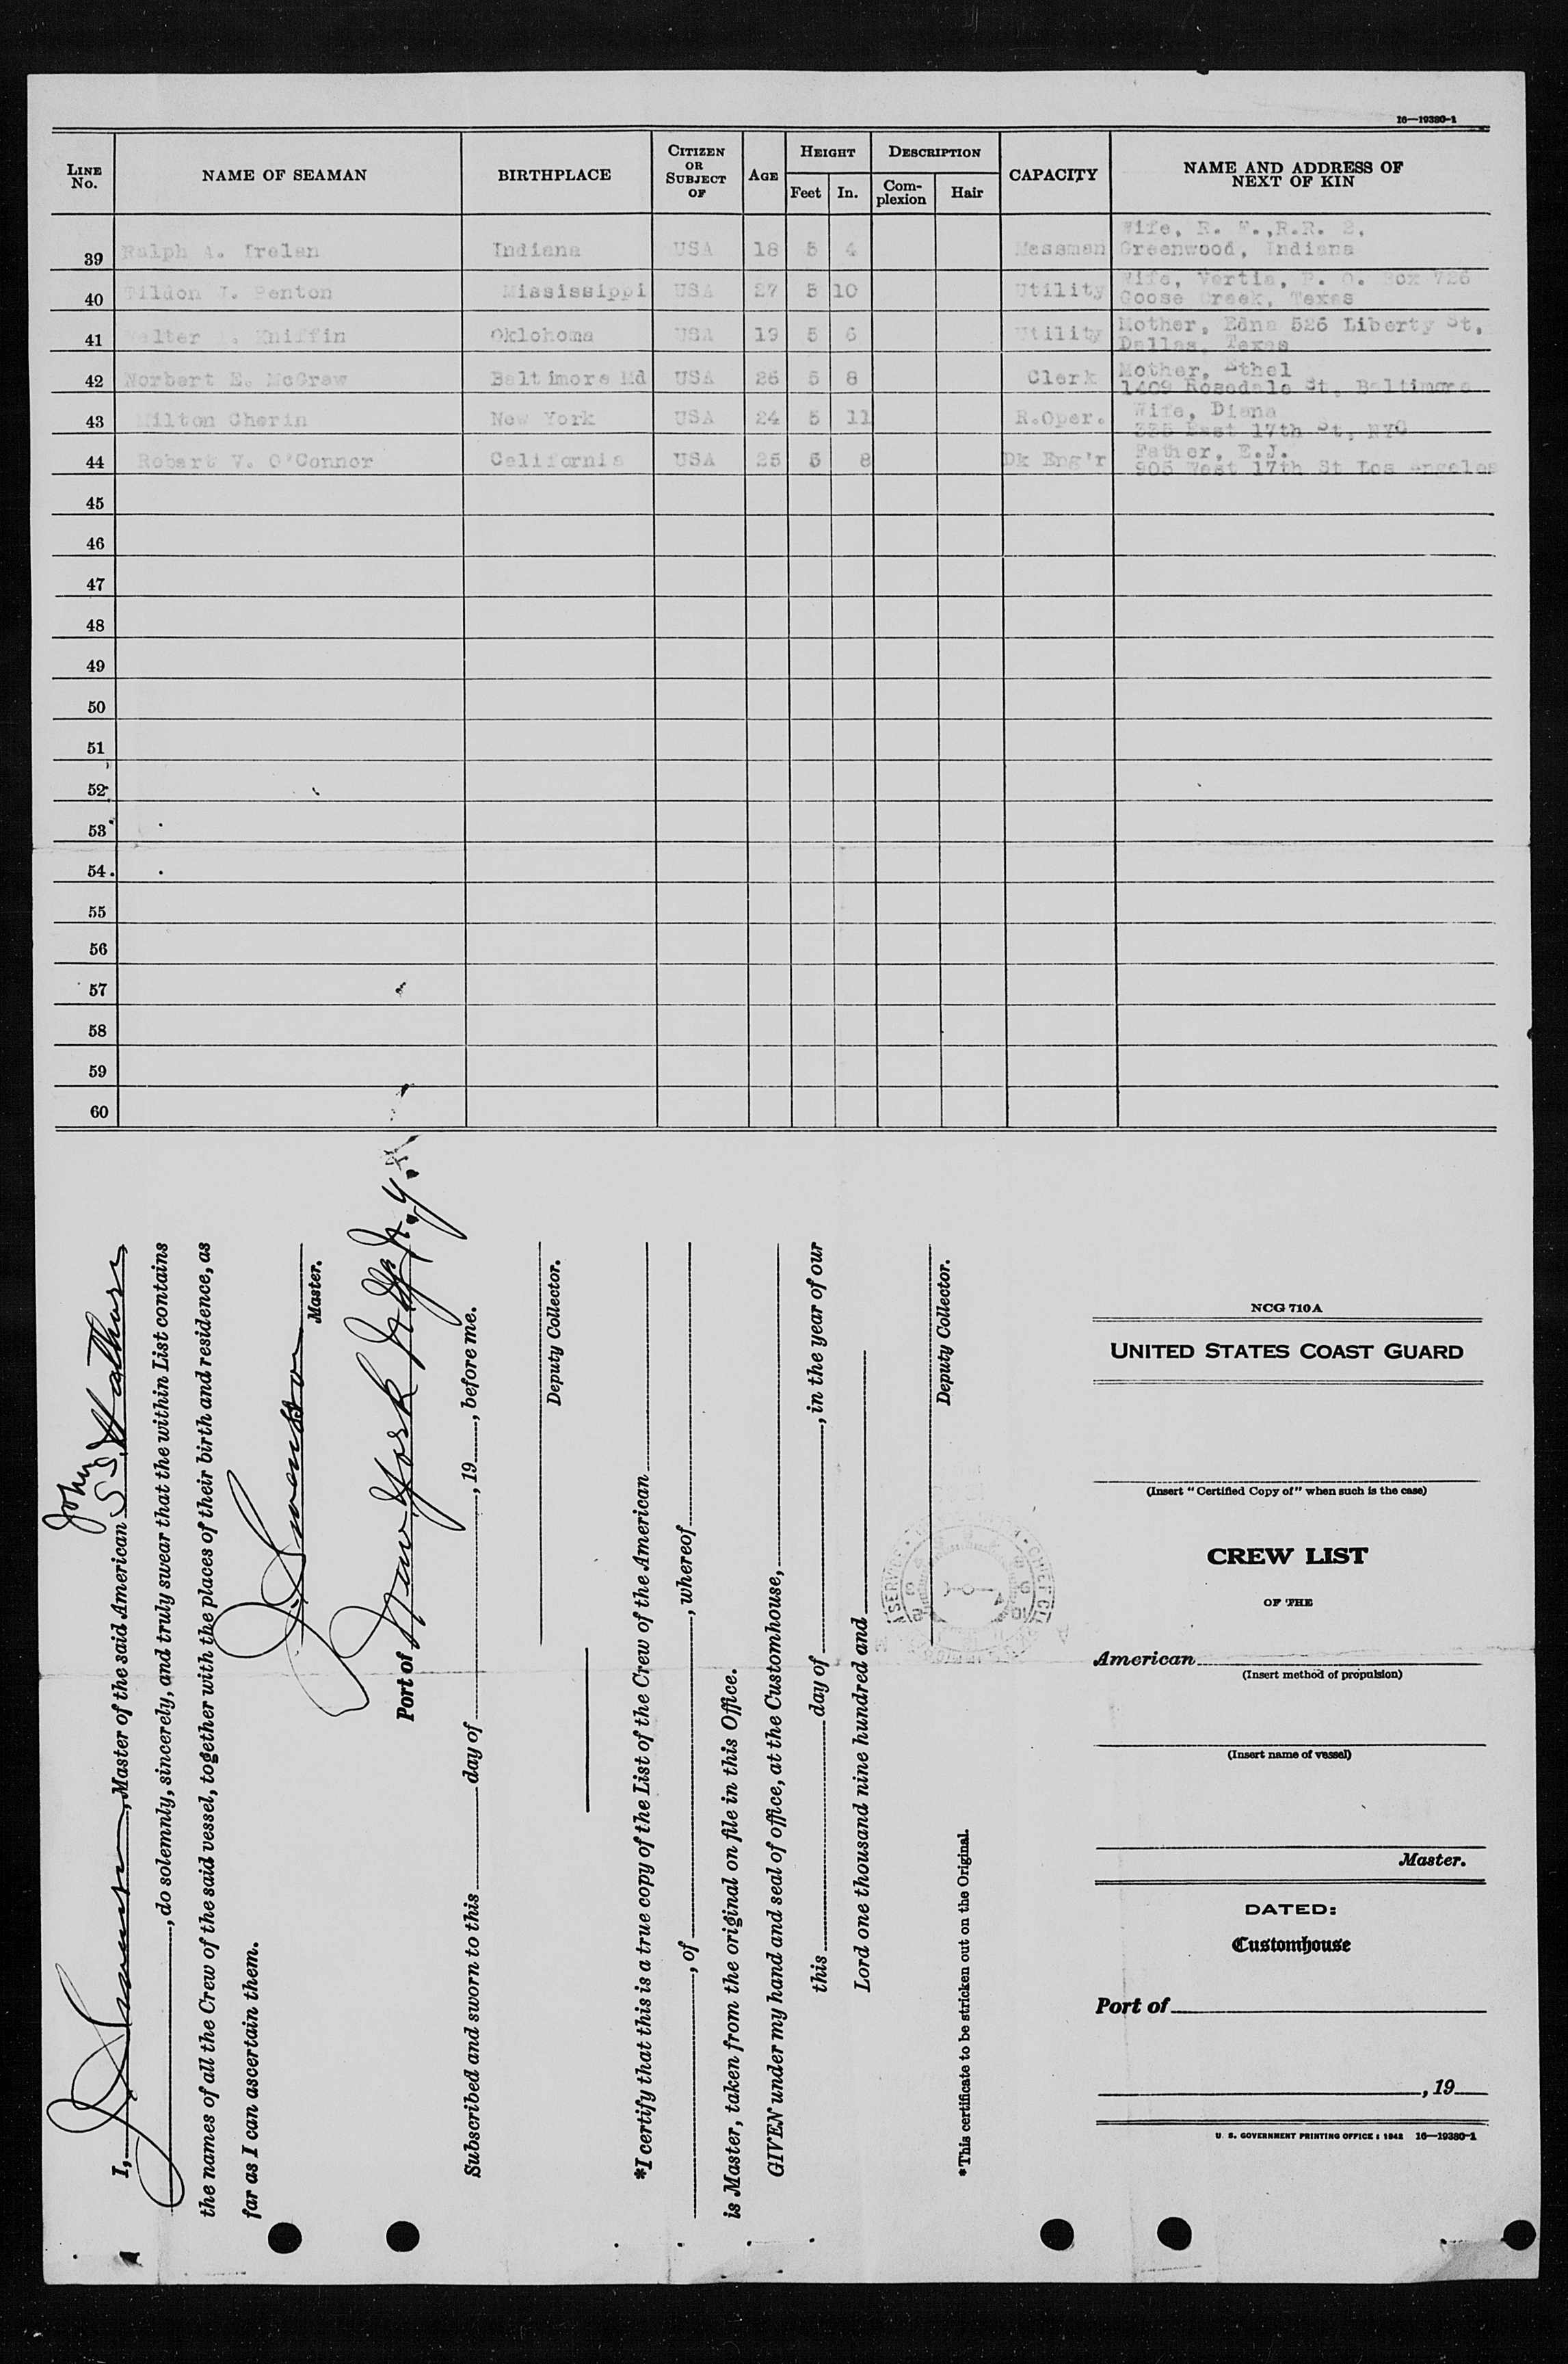 16—19380-1
LINE No. NAME OF SEAMAN BIRTHPLACE CITIZEN OR SUBJECT OF AGE HEIGHT Feet In. DESCRIPTION Com-plexion Hair CAPACITY NAME AND ADDRESS OF NEXT OF KIN
39 Ralph A. Irelan Indiana USA 18 5 4 Messman Wife, R. W.,R.R. 2, Greenwood, Indiana
40 Tildon J. Penton Mississippi USA 27 5 10 Utility Wife, Vertia, P. O. Box 726 Goose Creek, Texas
41 Walter Kniffin Oklohoma USA 19 5 6 Utility Mother, Edna 526 Liberty St, Dallas, Texas
42 Norbert E. McGraw Baltimore Md USA 26 5 8 Clerk Mother, Ethel 1409 Rosedale St, Baltimore
43 Milton Cherin New York USA 24 5 11 R.Oper. Wife, Diana 325 East 17th St, NYC
44 Robert V. O'Connor California USA 25 5 8 Dk Eng'r Father, E.J. 905 West 17th St Los Angeles
45
46
47
48
49
50
51
52
53
54
55
56
57
58
59
60
I, J. Swenson, Master of the said American SS John
, do solemnly, sincerely, and truly swear that the within List contains
the names of all the Crew of the said vessel, together with the places of their birth and residence, as
far as I can ascertain them.
J. Swenson
Master.
Port of New York N.Y.
Subscribed and sworn to this day of , 19 , before me.
Deputy Collector.
*I certify that this is a true copy of the List of the Crew of the American
, of , whereof
is Master, taken from the original on file in this Office.
GIVEN under my hand and seal of office, at the Customhouse,
this day of , in the year of our
Lord one thousand nine hundred and
Deputy Collector.
*This certificate to be stricken out on the Original.
NCG 710A
UNITED STATES COAST GUARD
(Insert "Certified Copy of" when such is the case)
CREW LIST
OF THE
American
(Insert method of propulsion)
(Insert name of vessel)
Master.
DATED:
Customhouse
Port of
, 19
U. S. GOVERNMENT PRINTING OFFICE : 1942 16—19380-1